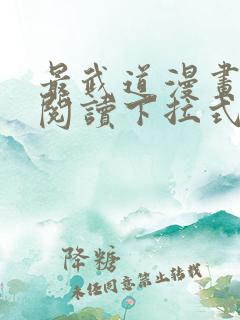 最武道漫畫
閱讀下拉式
降糖
未任同意禁止轉載